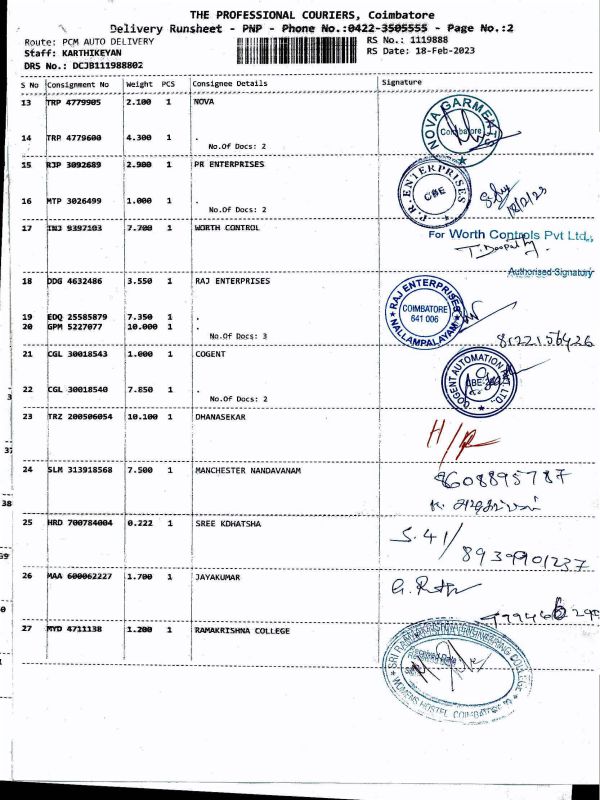 THE PROFESSIONAL COURIERS, Coimbatore
Delivery Runsheet - PNP - Phone No.:0422-3505555 - Page No.:2
Route: PCM AUTO DELIVERY RS No.: 1119888
Staff: KARTHIKEYAN RS Date: 18-Feb-2023
DRS No.: DCJB111988802
S No Consignment No Weight PCS Consignee Details Signature
13 TRP 4779905 2.100 1 NOVA
NOVA GARMENTS
Coimbatore
14 TRP 4779600 4.300 1 .
No.Of Docs: 2
15 RJP 3092689 2.900 1 PR ENTERPRISES
P.R. ENTERPRISES
CBE
18/2/23
16 MTP 3026499 1.000 1 .
No.Of Docs: 2
17 INJ 9397103 7.700 1 WORTH CONTROL
For Worth Controls Pvt Ltd.,
Authorised Signatory
18 DDG 4632486 3.550 1 RAJ ENTERPRISES
RAJ ENTERPRISES
COIMBATORE
641 006
NALLAMPALAYAM
19 EDQ 25585879 7.350 1 .
20 GPM 5227077 10.000 1 .
No.Of Docs: 3
8122156426
21 CGL 30018543 1.000 1 COGENT
COGENT AUTOMATION PVT. LTD.,
22 CGL 30018540 7.850 1 .
No.Of Docs: 2
23 TRZ 200506054 10.100 1 DHANASEKAR
24 SLM 313918568 7.500 1 MANCHESTER NANDAVANAM
8608895787
25 HRD 700784004 0.222 1 SREE KDHATSHA
S.41/
8939901237
26 MAA 600062227 1.700 1 JAYAKUMAR
27 MYD 4711138 1.200 1 RAMAKRISHNA COLLEGE
SRI RAMAKRISHNA ENGINEERING COLLEGE
WOMENS HOSTEL COIMBATORE